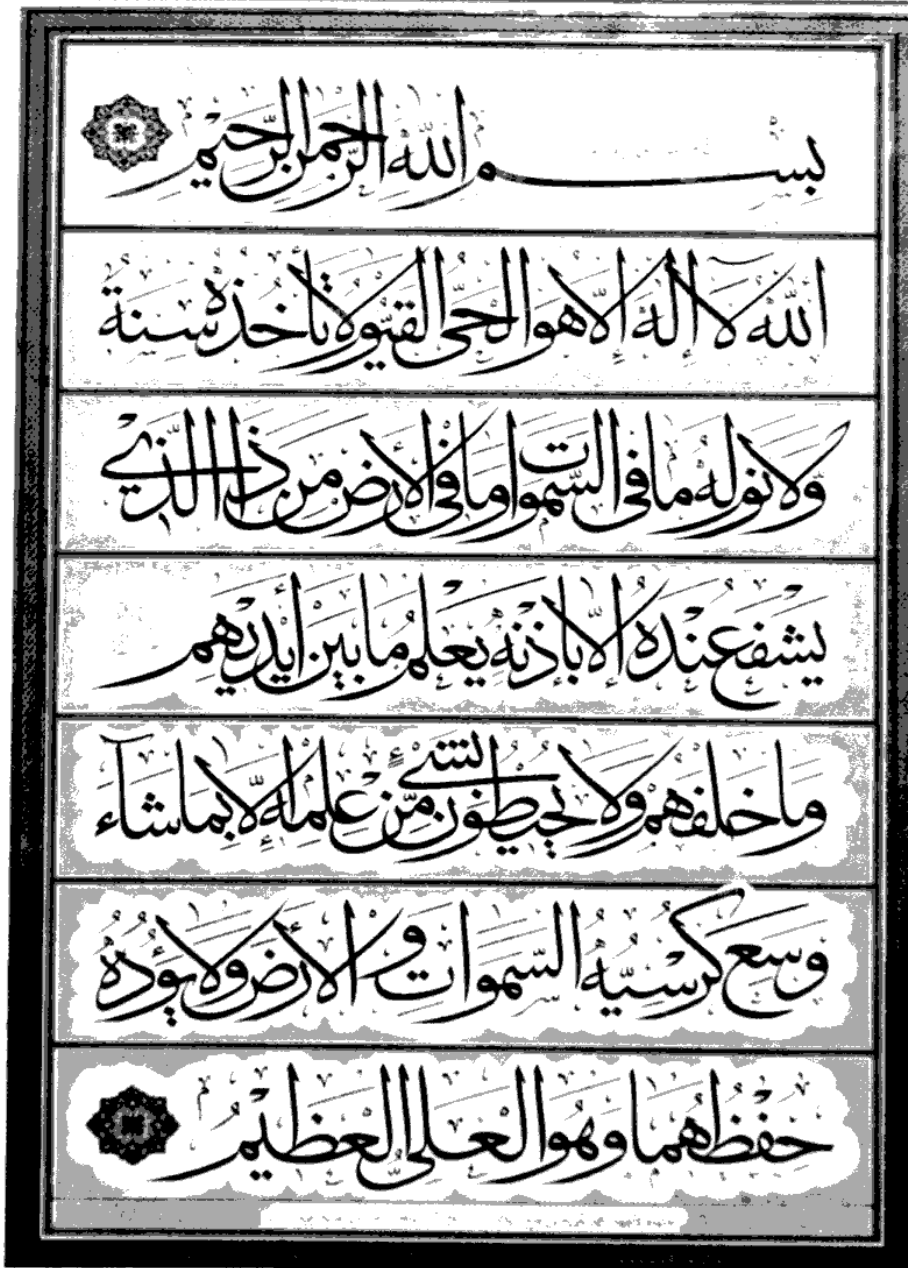 بسم الله الرحمن الرحيم
الله لا إله إلا هو الحي القيوم لا تأخذه سنة
ولا نوم له ما في السموات وما في الأرض من ذا الذي
يشفع عنده إلا بإذنه يعلم ما بين أيديهم
وما خلفهم ولا يحيطون بشيء من علمه إلا بما شاء
وسع كرسيه السموات والأرض ولا يؤده
حفظهما وهو العلي العظيم